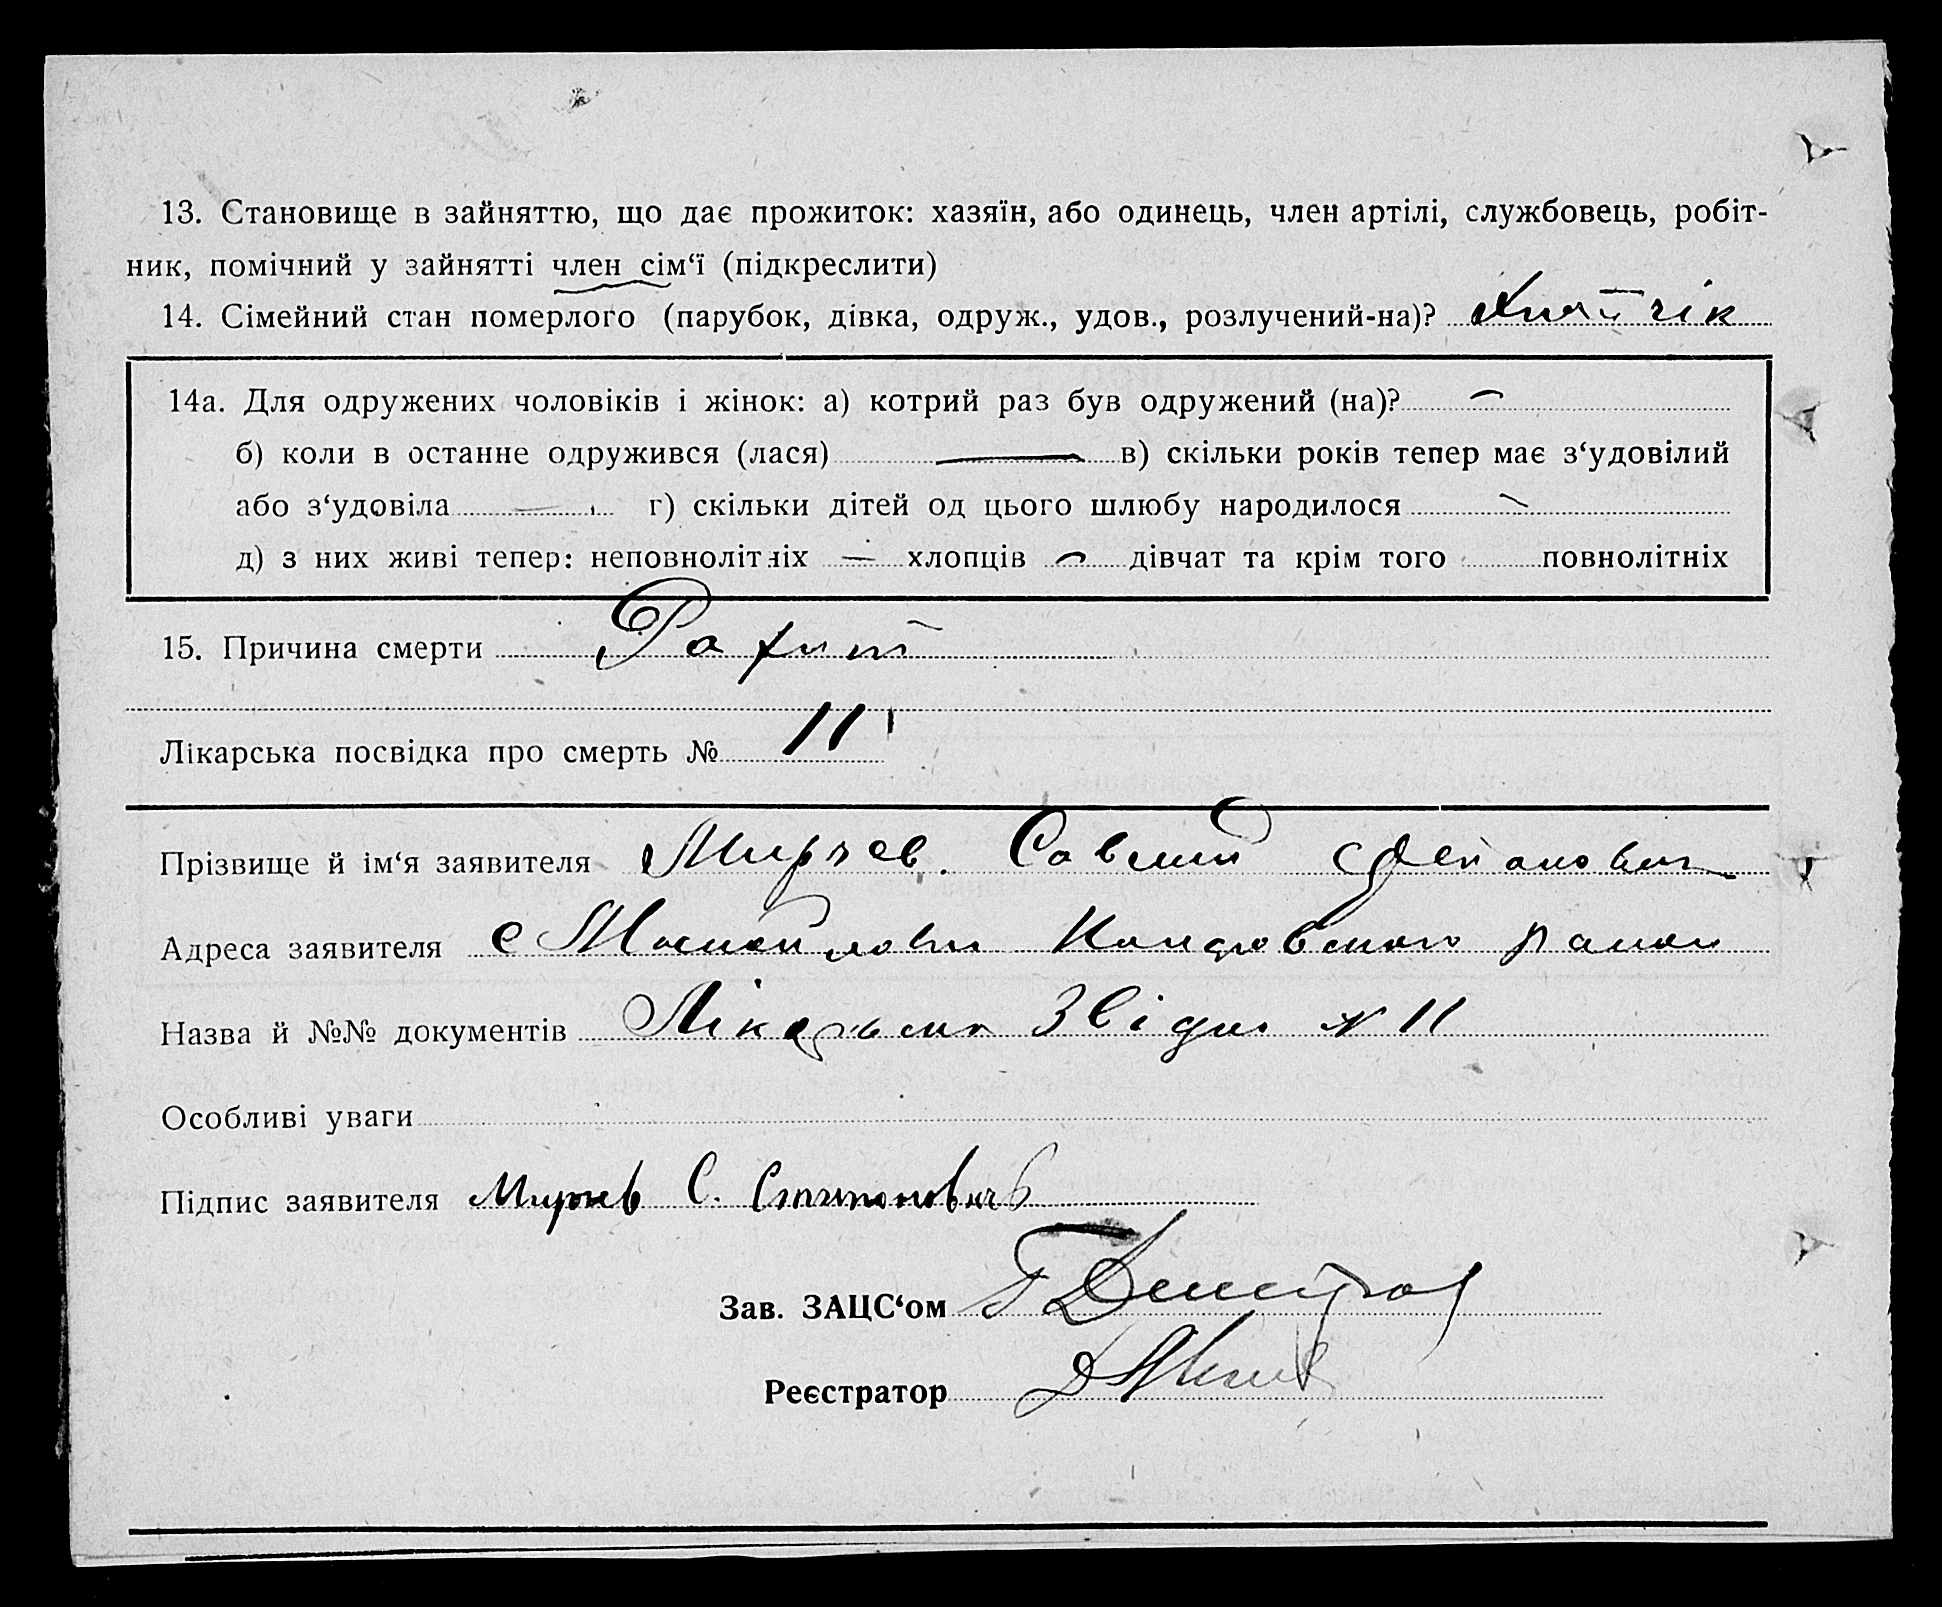 13. Становище в зайняттю, що дає прожиток: хазяїн, або одинець, член артілі, службовець, робіт-
ник, помічний у зайнятті член сім‘ї (підкреслити)
14. Сімейний стан померлого (парубок, дівка, одруж., удов., розлучений-на)?
14а. Для одружених чоловіків і жінок: а) котрий раз був одружений (на)? —
б) коли в останне одружився (лася) — в) скільки років тепер має з‘удовілий
або з‘удовіла — г) скільки дітей од цього шлюбу народилося —
д) з них живі тепер: неповнолітніх — хлопців — дівчат та крім того повнолітніх
15. Причина смерти Рахит
Лікарська посвідка про смерть № 11
Прізвище й ім‘я заявителя Мирчев Савелий Степанович
Адреса заявителя с
Назва й №№ документів Лікарська Звідка № 11
Особливі уваги
Підпис заявителя С.
Зав. ЗАЦС‘ом
Реєстратор